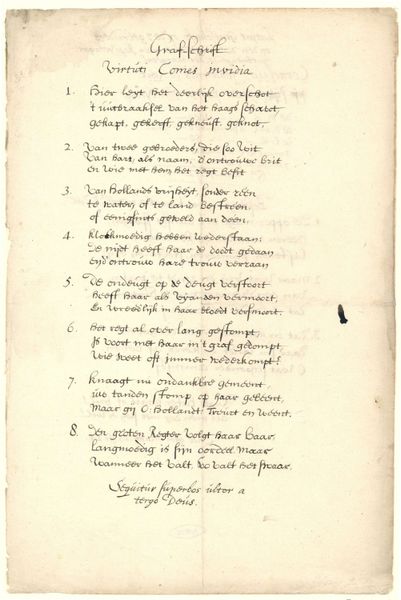 Graf-schrift
Virtuti Comes invidia
1. Hier leyt het deerlijk overschot
't uutbraaksel van het Haags schavot,
gekapt, gekerft, gekneust, geknot,
2. Van twee gebroeders, die soo wit
van hart, als naam, d'ontrouwe brit
en wie met hem het regt besit
3. Van Hollands vrijheyt, sonder reen
te water, of te land bestreen,
of eenigsints geweld aan doen,
4. Klockmoedig hebben wederstaan:
De nijdt heeft haar de doodt gedaan
end' ontrouw hare trouw verraan
5. De ondeugt op de deugt verstoort
heeft haar als vyanden vermoort,
En vreedlijck in haar bloedt versmoort.
6. Het regt al over lang gestompt,
Is voort met haar in't graf gedompt,
wie weet oft immer wederkompt?
7. Knaagt nu ondankbre gemeent,
uw tanden stomp op haar gebeent,
Maar gij O: Hollandt: Treurt en weent.
8. Den groten Regter volgt haar baar,
langmoedig is sijn oordeel maar
wanneer het valt, soo valt het swaar.
Sequitur superbos ultor a
tergo Deus.